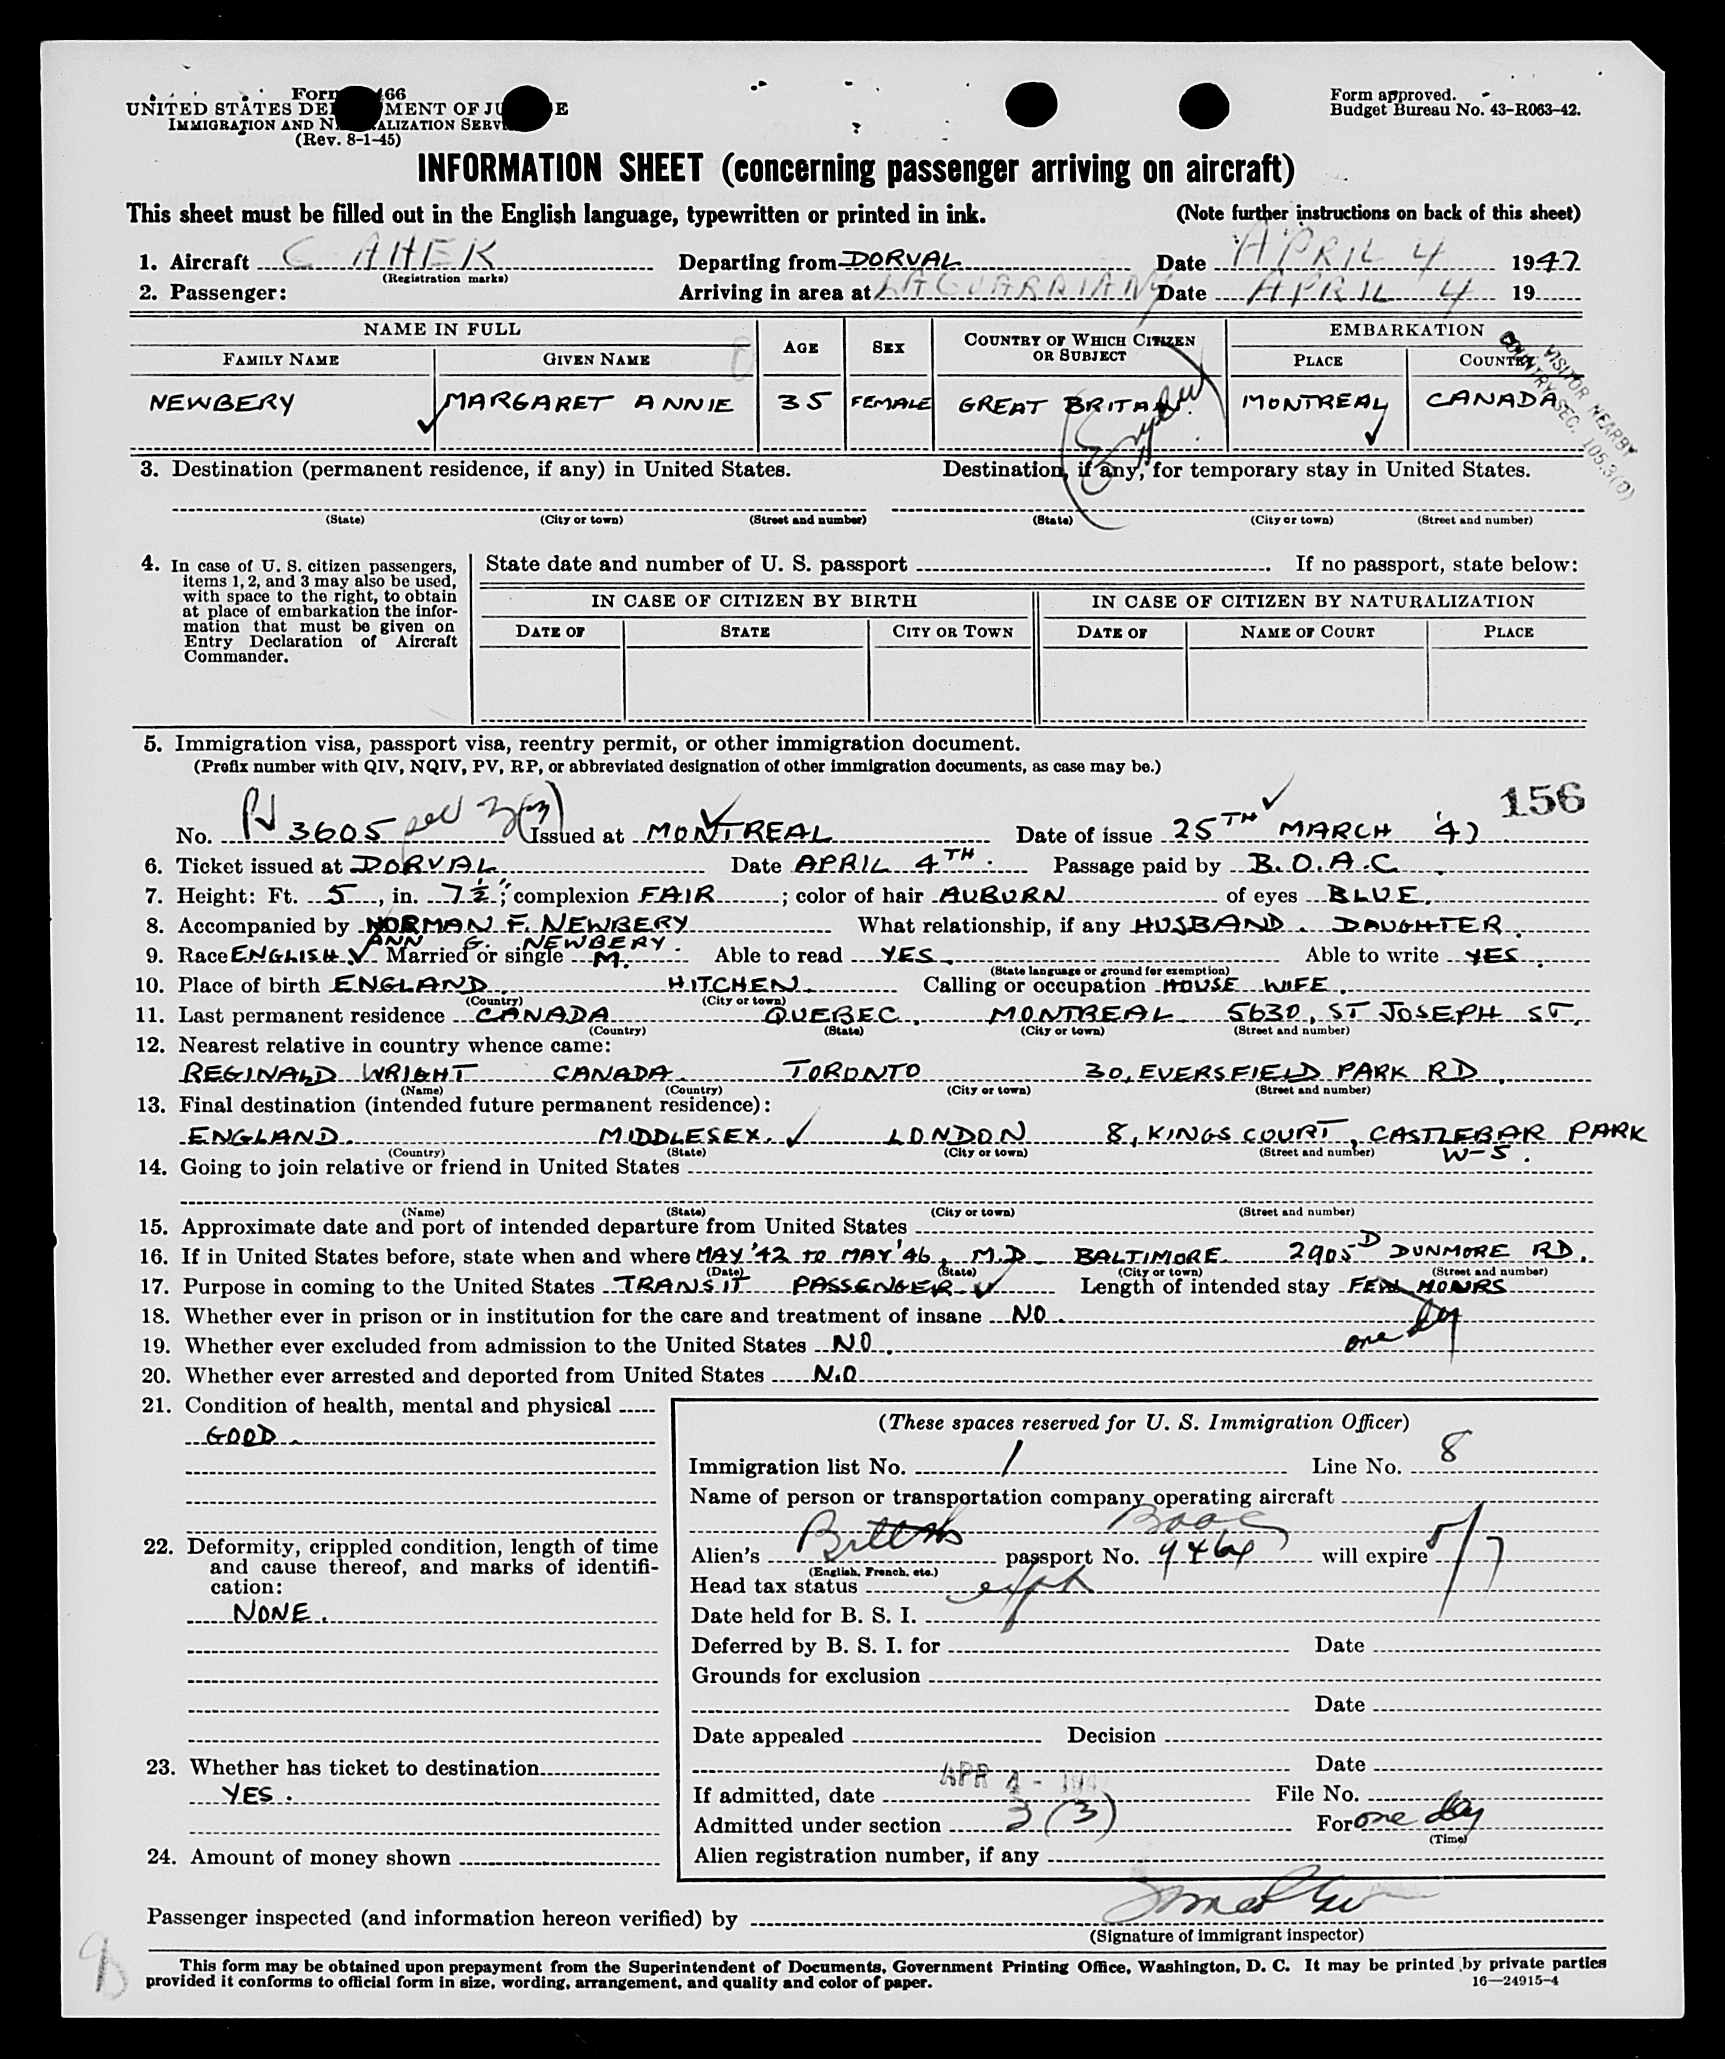 Form 466
UNITED STATES DEPARTMENT OF JUSTICE
IMMIGRATION AND NATURALIZATION SERVICE
(Rev. 8-1-45)
Form approved.
Budget Bureau No. 43-R063-42.
INFORMATION SHEET (concerning passenger arriving on aircraft)
This sheet must be filled out in the English language, typewritten or printed in ink. (Note further instructions on back of this sheet)
1. Aircraft G AHEK Departing from DORVAL Date APRIL 4 1947
(Registration marks)
2. Passenger: Arriving in area at LAGUARDIA NY Date APRIL 4 19
NAME IN FULL AGE SEX COUNTRY OF WHICH CITIZEN OR SUBJECT EMBARKATION
FAMILY NAME GIVEN NAME PLACE COUNTRY
NEWBERY MARGARET ANNIE 35 FEMALE GREAT BRITAIN. MONTREAL CANADA
VISITOR NEARBY
COUNTRY SEC. 105.3(D)
3. Destination (permanent residence, if any) in United States. Destination, if any, for temporary stay in United States.
(State) (City or town) (Street and number) (State) (City or town) (Street and number)
4. In case of U. S. citizen passengers, items 1, 2, and 3 may also be used, with space to the right, to obtain at place of embarkation the information that must be given on Entry Declaration of Aircraft Commander.
State date and number of U. S. passport If no passport, state below:
IN CASE OF CITIZEN BY BIRTH IN CASE OF CITIZEN BY NATURALIZATION
DATE OF STATE CITY OR TOWN DATE OF NAME OF COURT PLACE
5. Immigration visa, passport visa, reentry permit, or other immigration document.
(Prefix number with QIV, NQIV, PV, RP, or abbreviated designation of other immigration documents, as case may be.)
156
No. PV 3605 sec 3(3) Issued at MONTREAL Date of issue 25TH MARCH '47
6. Ticket issued at DORVAL Date APRIL 4TH. Passage paid by B.O.A.C.
7. Height: Ft. 5, in. 7½"; complexion FAIR; color of hair AUBURN of eyes BLUE.
8. Accompanied by NORMAN F. NEWBERY What relationship, if any HUSBAND. DAUGHTER.
ANN G. NEWBERY.
9. Race ENGLISH Married or single M. Able to read YES. Able to write YES.
(State language or ground for exemption)
10. Place of birth ENGLAND. HITCHEN. Calling or occupation HOUSE WIFE.
(Country) (City or town)
11. Last permanent residence CANADA QUEBEC, MONTREAL 5630, ST JOSEPH ST,
(Country) (State) (City or town) (Street and number)
12. Nearest relative in country whence came:
REGINALD WRIGHT CANADA. TORONTO 30, EVERSFIELD PARK RD.
(Name) (Country) (City or town) (Street and number)
13. Final destination (intended future permanent residence):
ENGLAND. MIDDLESEX. LONDON 8, KINGS COURT, CASTLEBAR PARK
W-5.
(Country) (State) (City or town) (Street and number)
14. Going to join relative or friend in United States
(Name) (State) (City or town) (Street and number)
15. Approximate date and port of intended departure from United States
16. If in United States before, state when and where MAY '42 TO MAY '46, M.D. BALTIMORE 2905D DUNMORE RD.
(Date) (State) (City or town) (Street and number)
17. Purpose in coming to the United States TRANSIT PASSENGER Length of intended stay FEW HOURS
one day
18. Whether ever in prison or in institution for the care and treatment of insane NO.
19. Whether ever excluded from admission to the United States NO.
20. Whether ever arrested and deported from United States N.O
21. Condition of health, mental and physical
GOOD.
22. Deformity, crippled condition, length of time and cause thereof, and marks of identification:
NONE.
23. Whether has ticket to destination
YES.
24. Amount of money shown
(These spaces reserved for U. S. Immigration Officer)
Immigration list No. 1 Line No. 8
Name of person or transportation company operating aircraft
BOAC
Alien's British passport No. 9464 will expire 5/7
(English, French, etc.)
Head tax status
Date held for B. S. I.
Deferred by B. S. I. for Date
Grounds for exclusion
Date
Date appealed Decision
Date
If admitted, date APR 4 - 1947 File No.
Admitted under section 3(3) For one day
(Time)
Alien registration number, if any
Passenger inspected (and information hereon verified) by
(Signature of immigrant inspector)
This form may be obtained upon prepayment from the Superintendent of Documents, Government Printing Office, Washington, D. C. It may be printed by private parties
provided it conforms to official form in size, wording, arrangement, and quality and color of paper. 16—24915-4